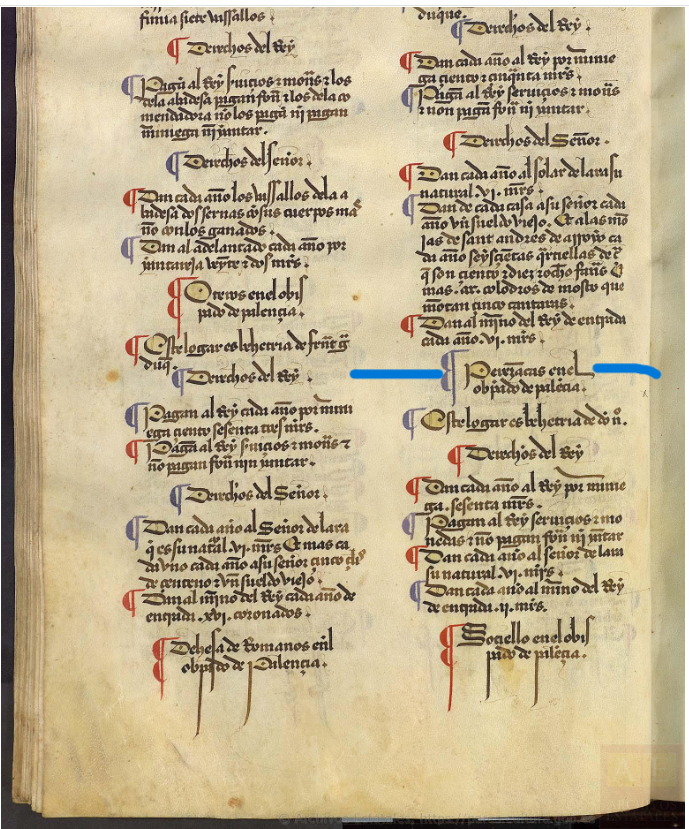 finia siete vassallos.
Derechos del Rey
Pagā al Rey s̃uicios ⁊ mon̄s ⁊ los
dela abadesa pagan fon̄ ⁊ los dela co
mendadora no los pagā ni pagan
martiniega nī yantar.
Derechos del señor.
Dan cada año los vassallos dela a
badesa dos sernas cō sus cuerpos ma
ño con los ganados.
Dan al adelantado cada año por
yantareia veynte ⁊ dos mr̄s.
Oteros enel obis
pado de palençia.
Este logar es behetria de
duq̄.
Derechos del Rey.
Pagan al Rey cada año por mari
ega ciento sesenta tres mr̄s.
Pagā al Rey s̃uicios ⁊ mon̄s ⁊
no pagan fon̄ nin yantar.
Derechos del Señor.
Dan cada año al Señor de lara
q̄ es su nat̃al .vj. mr̄s Et mas ca
da vno cada año a su señor cinco
de centeno ⁊ vn̄ sueldo viejo.
Dan al mīno del Rey cada año de
entrada .xvj. coronados.
Dehesa de Romanos en̄l
obp̄ado de Palençia.
duque.
Derechos del Rey.
Dan cada año al Rey por marinie
ga ciento ⁊ cinq̄nta mr̄s.
Pagan al Rey seruicios ⁊ mon̄s
⁊ non pagan fon̄ ni yantar.
Derechos del Señor.
Dan cada año al solar de lara su
natural .vj. mr̄s.
Dan de cada casa a su señor cada
año vn̄ sueldo viejo. Et a las mō
jas de sant andres de arroyo ca
da año seysçientas q̄rtiellas de
q̄ son ciento ⁊ diez ⁊ ocho fan̄s
mas. colodros de mosto que
montan cinco cantaras.
Dan al mīno del Rey de entrada
cada año .vj. mr̄s.
enel
obp̄ado de palēcia.
Este logar es behetria de do n̄.
Derechos del Rey
Dan cada año al Rey por marinie
ga. sesenta mr̄s.
Pagan al Rey seruicios ⁊ mo
nedas ⁊ no pagan fon̄ nī yātar
Dan cada año al señor de lara
su natural .vj. mr̄s.
Dan cada año al mīno del Rey
de entrada .ij. mr̄s.
Sotiello enel obis
pado de palēçia.